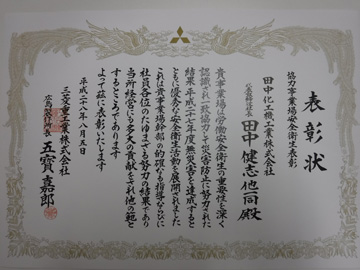 表彰状
協力事業場安全衛生表彰
田中化工機工業株式会社
代表取締役社長
田中健志他同殿
貴事業場は労働安全衛生の重要性を深く
認識され一致協力して災害防止に努力された
結果平成二十七年度無災害を達成すると
ともに優秀な安全衛生活動を展開されました
これは貴事業場幹部の的確なる指導ならびに
社員各位のたゆまざる努力の結果であり
当所経営にも多大の貢献をされ他の範と
するところであります
よって茲に表彰いたします
平成二十八年八月五日
三菱重工業株式会社
五寳嘉郎